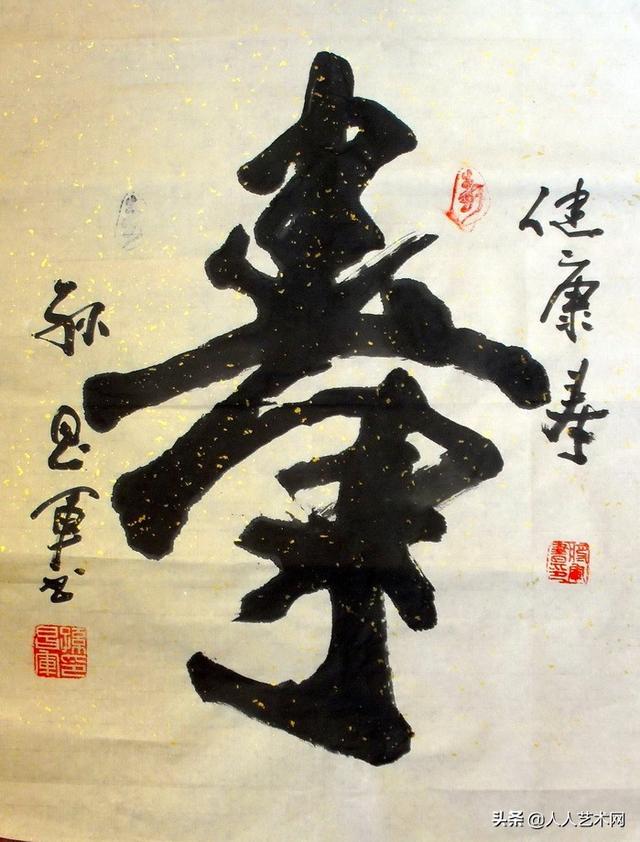 健康寿
寿
孙 军书
头条 @人人艺术网